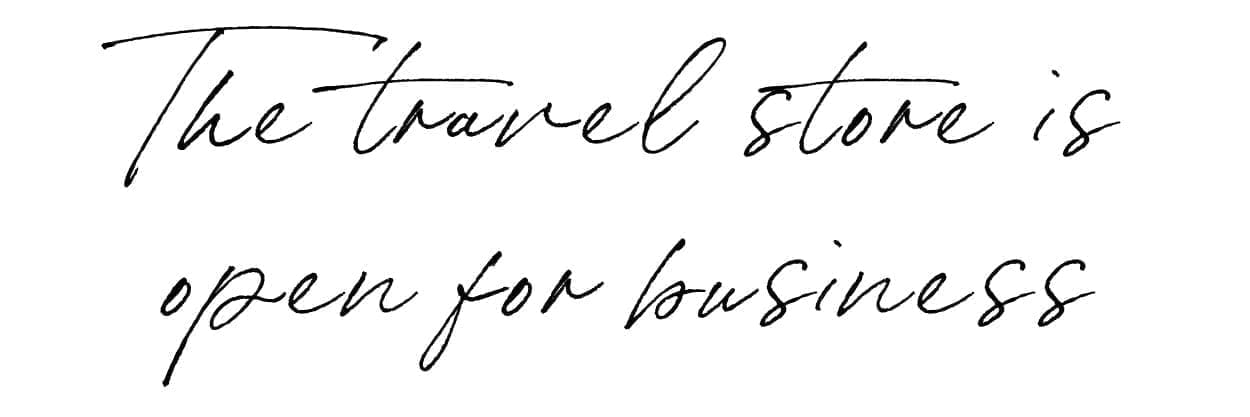 The travel store is
open for business